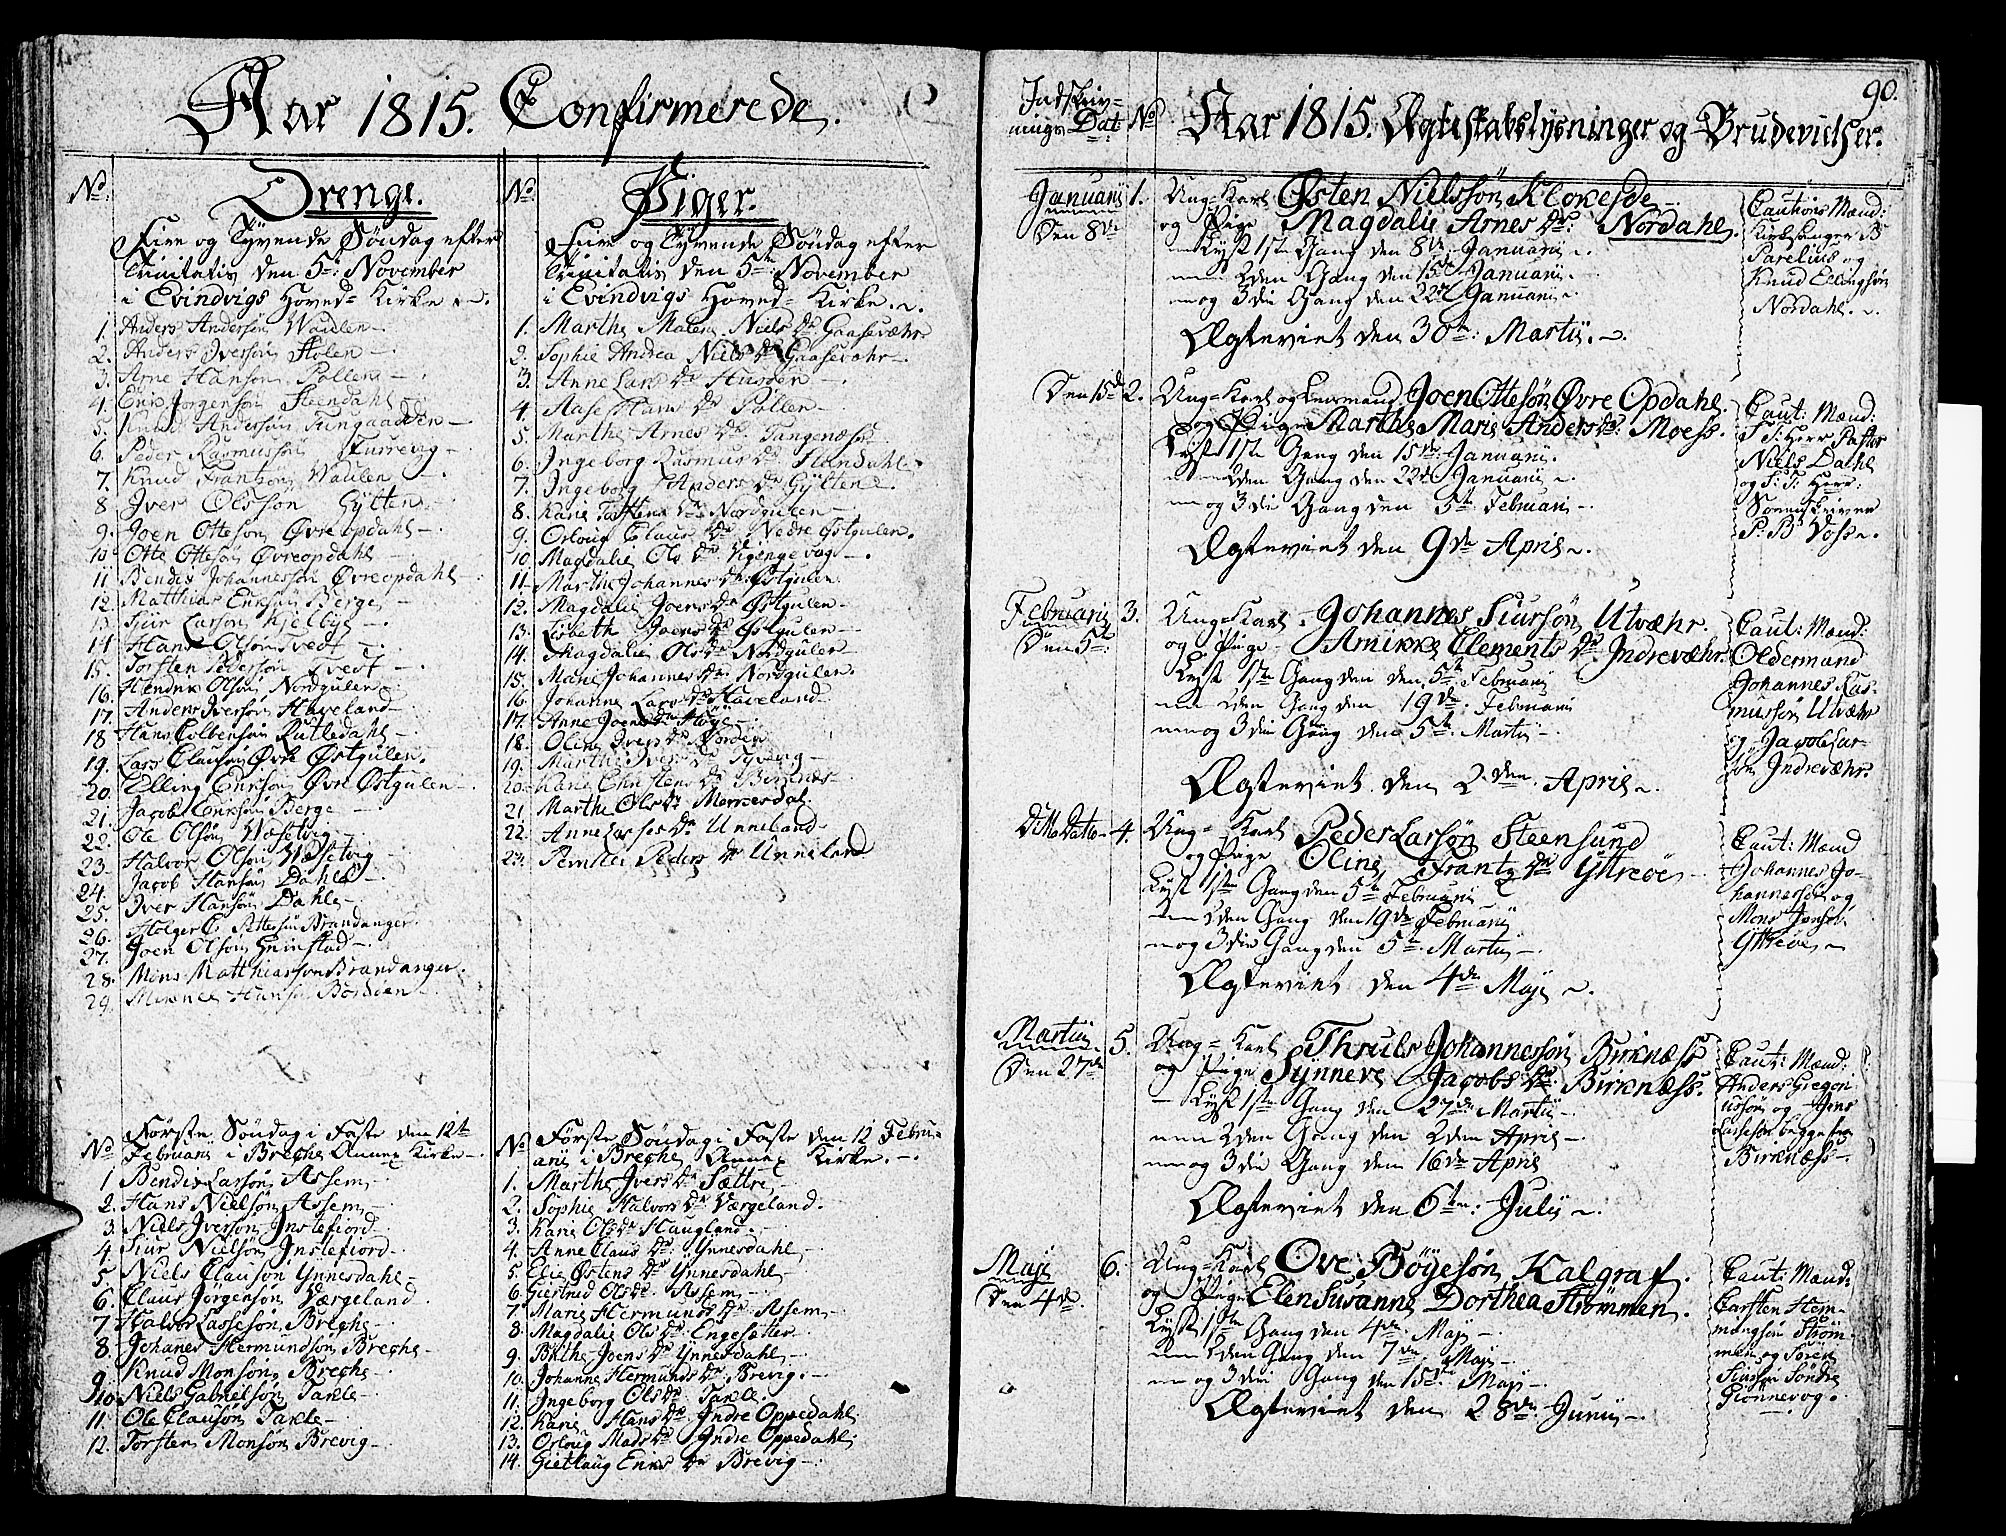 Aar 1815. Confirmerede.
No. Drenge.
Fire og Tyvende Søndag efter
Trinitatis den 5te November
i Evindvigs Hoved-Kirke.
1. Anders Andersøn Wadlen
2. Anders Iversøn Holen
3. Arne Hansøn Pollen
4. Erik Jørgensøn Steendahl
5. Knud Andersøn
6. Peder Rasmussøn Furrevig
7. Knud Frantzøn Wadlen
8 Iver Olssøn Gytten
9. Joen Ottesøn Øvreopdahl
10 Otte Ottesøn Øvreopdahl
11 Bendix Johannessøn Øvreopdahl
12. Matthias Eriksøn Berge
13 Siur Larsøn Kjelbye
14 Hans Olsøn Tvedt
15. Torsten Pedersøn Tvedt
16. Hendrik Olsøn Nordgulen
17. Anders Iversøn Haveland
18 Hans Colbensøn Rutledahl
19. Lars Clausøn Øvre Østgulen.
20. Elling Eriksøn Øvre Østgulen
21. Jacob Eriksøn Berge
22. Ole Olsøn Wæsetvig
23. Halvor Olsøn Wæsetvig
24. Jacob Hansøn Dahle
25. Iver Hansøn Dahle
26. Holger C Pettersøn Brandanger
27. Joen Olsøn Grinstad
28. Mons Matthiassøn Brandanger.
29. Hansøn
No Første Søndag i Faste den 12te
Februarii i Breche Annex Kirke
1 Bendix Larsøn Assem
2. Hans Nielsøn Assem
3. Niels Iversøn Instefiord
4 Siur Nielsøn Instefiord
5. Niels Clausøn Ynnesdahl
6. Claus Jørgensøn Værgeland
7 Halvor Lassesøn Breche
8. Johanes Hermundsøn Breche
9. Knud Monsøn Breche
10. Niels Gabrielsøn Takle
11. Ole Clausøn Takle
12. Torsten Monsøn Brevig
No. Piger.
Fire og Tyvende Søndag efter
Trinitatis den 5te November
i Evindvigs Hoved-Kirke.
1. Marthe Malene Niels Dr Gaasevæhr
2. Sophie Andrea Niels Dr Gaasevæhr
3. Anne Lars Dr
4. Aase Hans Dr Pollen
5. Marthe Arnes Dr. Tangenæs
6. Ingeborg Rasmus Dr
7. Ingeborg Anders Dr Gytten
8. Karie Torstens Dr Nordgulen
9. Orloug Claus Dr Nedre Østgulen
10. Magdalie Ols Dr
11. Marthe Johannes Dr Østgulen
12. Magdalie Joens Dr Østgulen
13. Lisbeth Joens Dr Østgulen
14. Magdalie Ols Dr Nordgulen
15. Marie Johannes Dr Nordgulen.
16. Johanne Lars Dr Haveland
17. Anne Joens Dr Høye
18. Oline Ivers Dr
19. Marthe Ivers Dr
20. Karie Christens Dr
21 Marthe Ols Dr
22. Anne Lasses Dr Unneland
23. Pernilee Peders Dr Unneland
No Første Søndag i Faste den 12 Febru-
arii i Breche Annex Kirke.
1. Marthe Ivers Dr Sættre
2. Sophie Halvors Dr Værgeland.
3. Karie Ols Dr Haugland.
4. Anne Claus Dr: Ynnesdahl
5. Elie Østens Dr Ynnesdahl
6. Giertrud Ols Dr Assem
7 Marie Hermunds Dr. Assem
8. Magdalie Ols Dr. Engesætter
9. Brithe Joens Dr Ynnesdahl
10. Johanne Hermunds Dr. Brevig.
11. Ingeborg Ols Dr. Takle
12. Karie Hans Dr Indre Oppedahl
13. Orloug Mads Dr Indre Oppedahl
14. Giertlaug Eriks Dr Brevig
90.
Indskriv-
nings Dat. No Aar 1815. Ægteskabslysninger og Brudevielser.
Januarii 1. Ung-Karl Østen Nielssøn Klokesde
Den 8de og Pige Magdalie Arnes Dr: Nordahl.
Lyst 1ste Gang den 8de Januarii
2den Gang den 15de Januarii.
og 3die Gang den 22de Januarii
Ægteviet den 30te Martii.
Cautions Mænd:
Kirkesanger B
Parelius og
Knud Ellingsøn
Nordahl.
Den 15de 2. Ung-Karl og Lensmand Joen Ottesøn Øvre Opdahl.
og Pige Marthe Marie Anders Dr: Moess.
Lyst 1ste Gang den 15de Januarii.
2den Gang den 22de Januarii
og 3die Gang den 5te Februarii
Ægteviet den 9de April.
Caut: Mænd:
S: T: Herr Pastor
Niels Dahl
og S: T: Herr:
Sorenskriver
P. B Voss.
Februarii 3. Ung-Karl Johannes Siursøn Utvæhr.
Den 5te og Pige Annikke Clements Dr Indrevæhr.
Lyst 1ste Gang den den 5te Februarii
2den Gang den 19de Februarii
og 3die Gang den 5te Martii
Ægteviet den 2den April.
Caut: Mænd:
Oldermand
Johannes Ras-
mussøn Utvæhr
og Jacob Lar-
søn Indrevæhr.
Ditto Datto 4. Ung-Karl Peder Larsøn Steensund
og Pige Oline Frantz Dr Yttreöe
Lyst 1ste Gang den 5te Februarii
2den Gang den 19de Februarii
og 3die Gang den 5te Martii
Ægteviet den 4de Maji
Caut: Mænd
Johannes Jo-
hannessøn og
Mons Jensøn
Yttreöe
Martii 5. Ung-Karl Thruls Johannessøn Birknæss
Den 27de og Pige Synneve Jacobs Dr: Birknæss.
Lyst 1ste Gang den 27de Martii
2den Gang den 2den April
og 3die Gang den 16de April
Ægteviet den 6te Julii
Caut: Mænd:
Anders Gregori
ussøn og Jens
Lassesøn begge fra
Birknæss
Maji 6. Ung-Karl Ove Böyesøn Kalgraf.
Den 4de. og Pige Elen Susanne Dorthea Strømmen.
Lyst 1ste Gang den 4de Maji
2den Gang den 7de Maji
og 3die Gang den 15de Maji
Ægteviet den 28de Junii
Caut: Mænd:
Carsten Hem-
mingsøn Strøm-
men og Søren
Siursøn Søndre
Giønnevog.